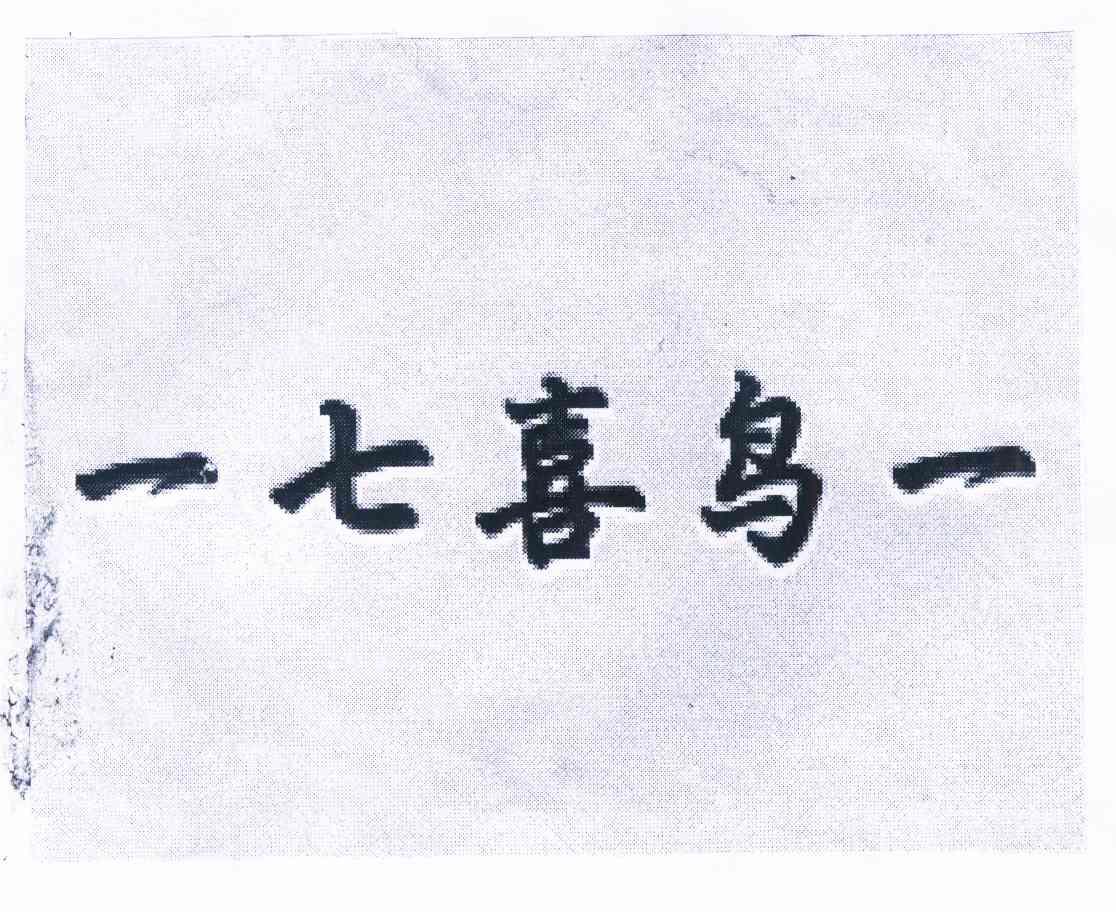 一七喜鸟一